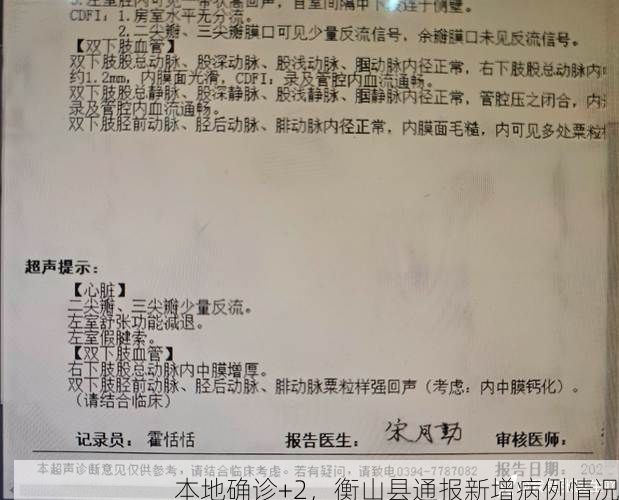 CDFI：1.房室水平无分流。
2.二尖瓣、三尖瓣膜口可见少量反流信号，余瓣膜口未见反流信号。
【双下肢血管】
双下肢股总动脉、股深动脉、股浅动脉、腘动脉内径正常，右下肢股总动脉内中
约1.2mm，内膜面光滑，CDFI：录及管腔内血流通畅。
双下肢股总静脉、股深静脉、股浅静脉、腘静脉内径正常，管腔压之闭合，内
录及管腔内血流通畅。
双下肢胫前动脉、胫后动脉、腓动脉内径正常，内膜面毛糙，内可见多处粟粒样
超声提示：
【心脏】
二尖瓣、三尖瓣少量反流。
左室舒张功能减退。
左室假腱索。
【双下肢血管】
右下肢股总动脉内中膜增厚。
双下肢胫前动脉、胫后动脉、腓动脉粟粒样强回声（考虑：内中膜钙化）。
（请结合临床）
记录员：霍恬恬 报告医生：宋月勤 审核医师：
本超声诊断意见仅供参考，请结合临床考虑。若有疑问，请致电0394-7787082 报告日期：202
本地确诊+2，衡山县通报新增病例情况